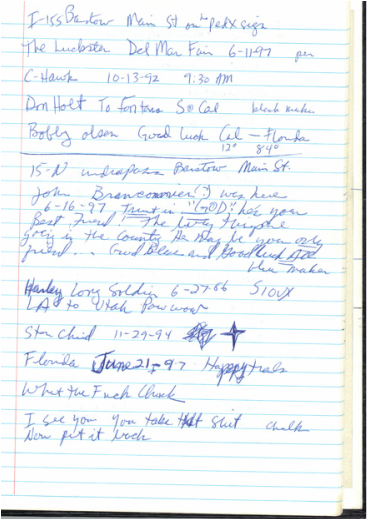 I-15S Barstow Main St on the pedx sign
The Luckster Del Mar Fair 6-11-97 pen
C-Hawk 10-13-92 9:30 AM
Don Holt To Fontana So Cal black maker
Bobby olsen Good Luck Cal - Florida
12° 84°
15-N underpass Barstow Main St.
John (?) was here
6-16-97 Trust in "(GOD)" he's your
Best Friend! The
in the County He May be you only
friend... God Bless and Good Luck All
blue maker
Harley Long Soldier 6-27-86 SIOUX
LA to Utah Pow wow
Star Child 11-29-94
Florida June 21-97 Happy trals
What the Fuck Chuck
I see you you take shit chalk
Now put it back